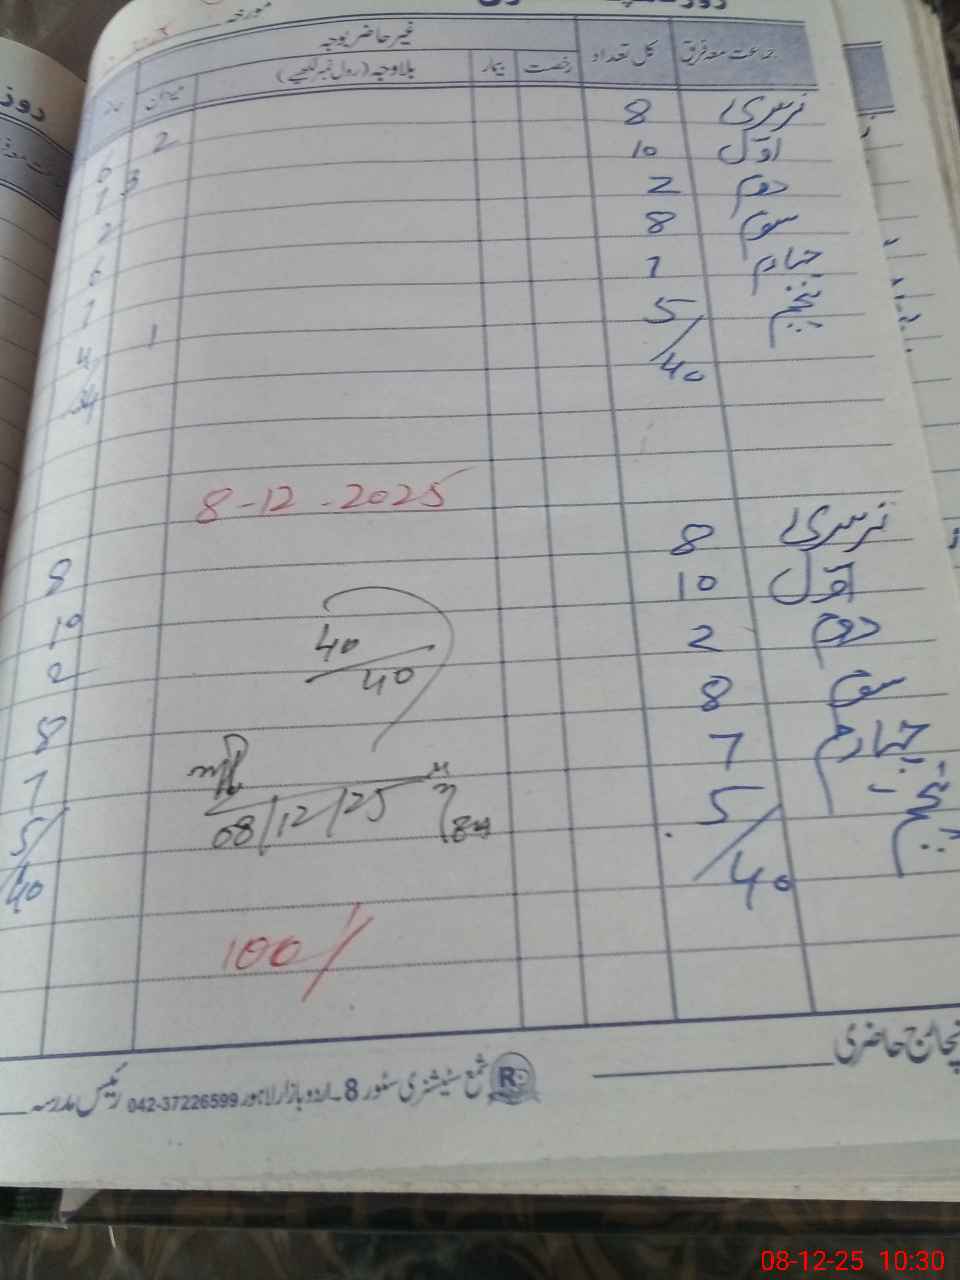 غیر حاضر بوجہ
جماعت معہ فریق کل تعداد رخصت بیمار بلاوجہ (رول نمبر لکھیے) میزان
نرسری 8 2 6
اول 10 3 7
دوم 2 2
سوم 8
چہارم 7 7
پنجم 5 1 4
40 34
8-12-2025
نرسری 8 8
اول 10 10
دوم 2 2
سوم 8 8
چہارم 7 7
پنجم 5 5
40 40
40
40
08/12/25
100%
انچارج حاضری
R شمع سٹیشنری سٹور 8۔اردو بازار لاہور 042-37226599 رئیس مدرسہ
08-12-25 10:30